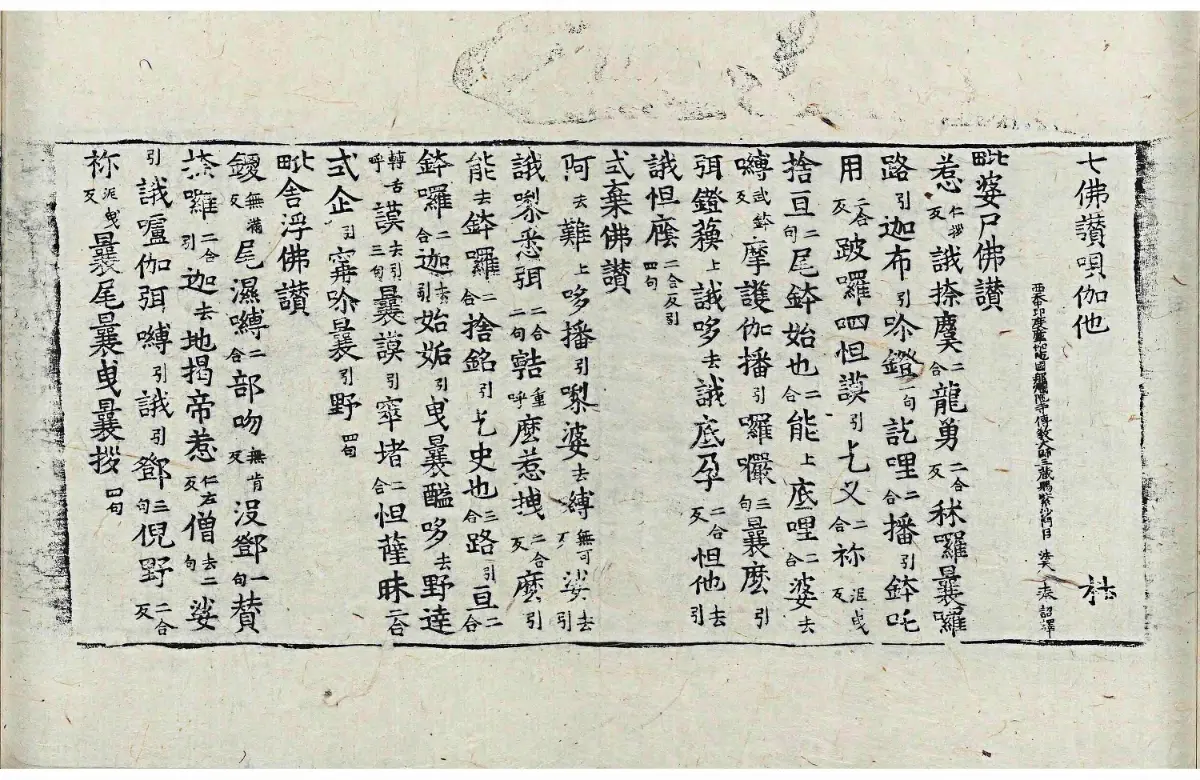 七佛讚唄伽他 杜
西天中印度摩伽陀國那爛陀寺傳教大師三藏賜紫沙門臣法天奉詔譯
毗婆尸佛讚
惹仁拶反誐捺麌二合龍勇二合反秫囉曩囉
路引迦布引唥鐙一句訖哩二合播引鉢吒
用二合反跛囉呬怛謨引乞叉二合祢泥曳反
捨亘二句尾鉢始也二合能上底哩二合婆去
嚩武鉢反摩護伽播引囉囐三句曩麽引
弭鐙蘱上誐哆去誐底孕二合反怛他去引
誐怛廕二合反引四句
式棄佛讚
阿去難上哆播引㗚婆去嚩無可反娑去引
誐㗚悉弭二合二句㲉重呼麽惹拽二合反麽引
能去鉢囉二合捨銘引乞史也三合路引亘二合
鉢囉二合迦去引始姤引曳曩醯哆去野達
轉舌呼謨去引三句曩謨引窣堵二合怛薩昧二合
式企引寗唥曩引野四句
毗舍浮佛讚
鑁無滿反尾濕嚩二合部吻無肯反沒鄧一句贊
捺囉二合引迦去地揭帝惹仁左反僧去二句娑
引誐嚧伽弭嚩引誐引鄧三句倪野二合反
祢泥曳反曩尾曩曳曩拶四句